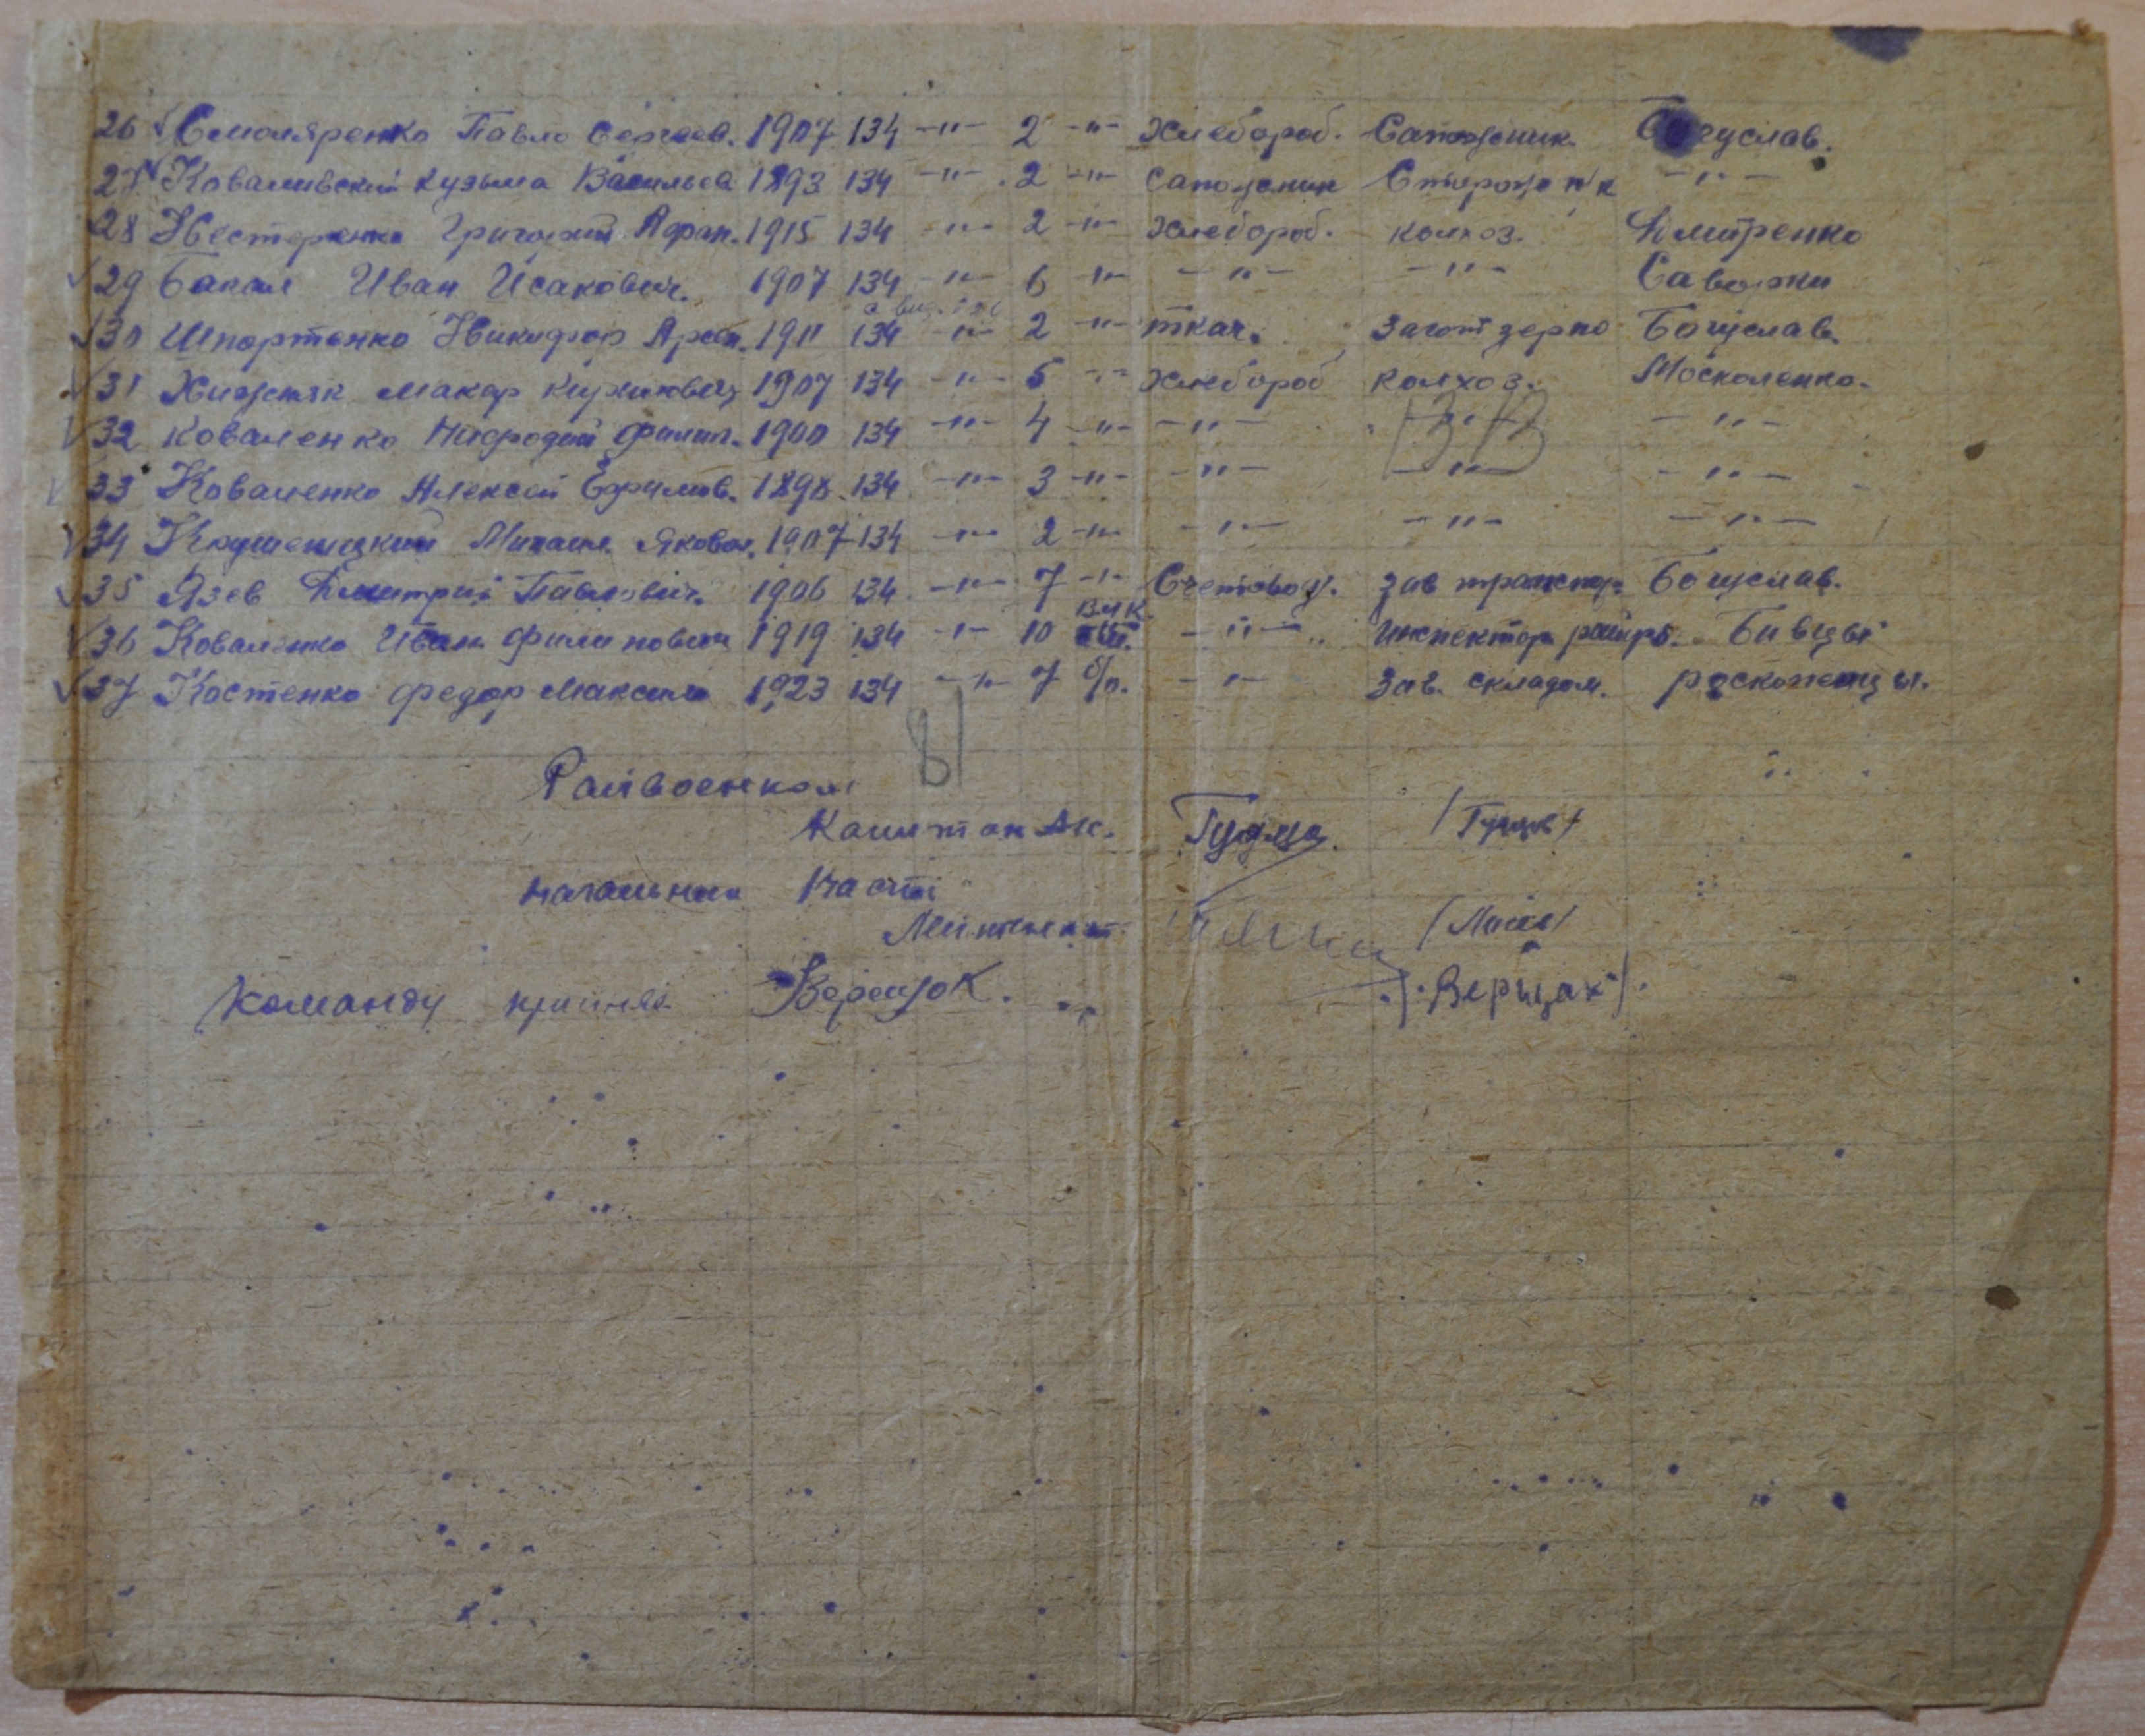 26 √ Смоляренко Павло Сергеев. 1907 134 -"- 2 -"- Хлебороб. Сапожник. Богуслав.
27 √ Коваливский Кузьма Васильев 1893 134 -"- 2 -"- сапожник Сторож -"-
28 Нестеренко Григорий Афан. 1915 134 -"- 2 -"- Хлебороб. колхоз. Дмитренко
√ 29 Бакал Иван Исакович. 1907 134 -"- 6 -"- -"- -"- Саварки
√ 30 Шпортенко Никифор Арсен. 1911 134 -"- 2 -"- ткач. Загот зерно Богуслав.
√ 31 Хижняк Макар Кирилович 1907 134 -"- 5 -"- Хлебороб колхоз. Москаленко.
√ 32 Коваленко Мифодий Филип. 1900 134 -"- 4 -"- -"- -"- -"-
√ 33 Коваленко Алексей Ефимов. 1898 134 -"- 3 -"- -"- -"- -"-
√ 34 Крушеницкий Михаил Яковл. 1907 134 -"- 2 -"- -"- -"- -"-
√ 35 Язев Дмитрий Павлович. 1906 134 -"- 7 -"- Счетовод. Зав транспор. Богуслав.
√ 36 Коваленко Иван Филипович 1919 134 -"- 10 -"- инспектор Бивцы
√ 37 Костенко Федор Максим 1923 134 -"- 7 б/п. -"- Зав. складом. роскопенцы.
81
Райвоенком
Капитан Ак. /Гудзь/
Начальник Части
Лейтенант
Команду принял Верещак. /Верщак/.